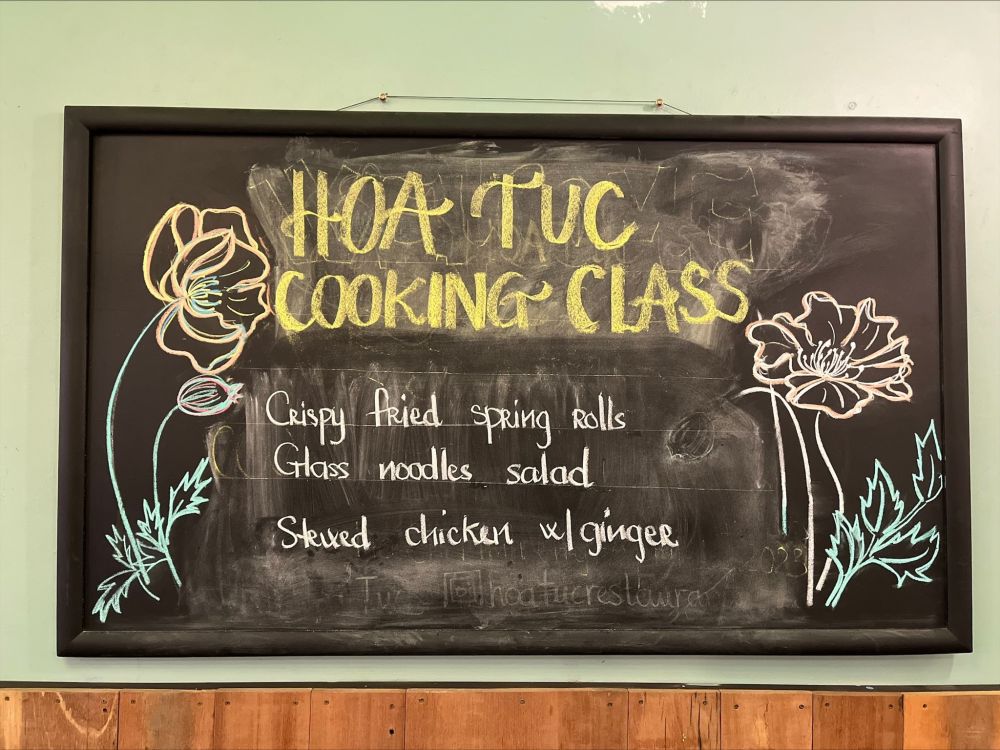 HOA TUC
COOKING CLASS
Crispy fried spring rolls
Glass noodles salad
Stewed chicken w/ginger
Tuc hoatucrestaura